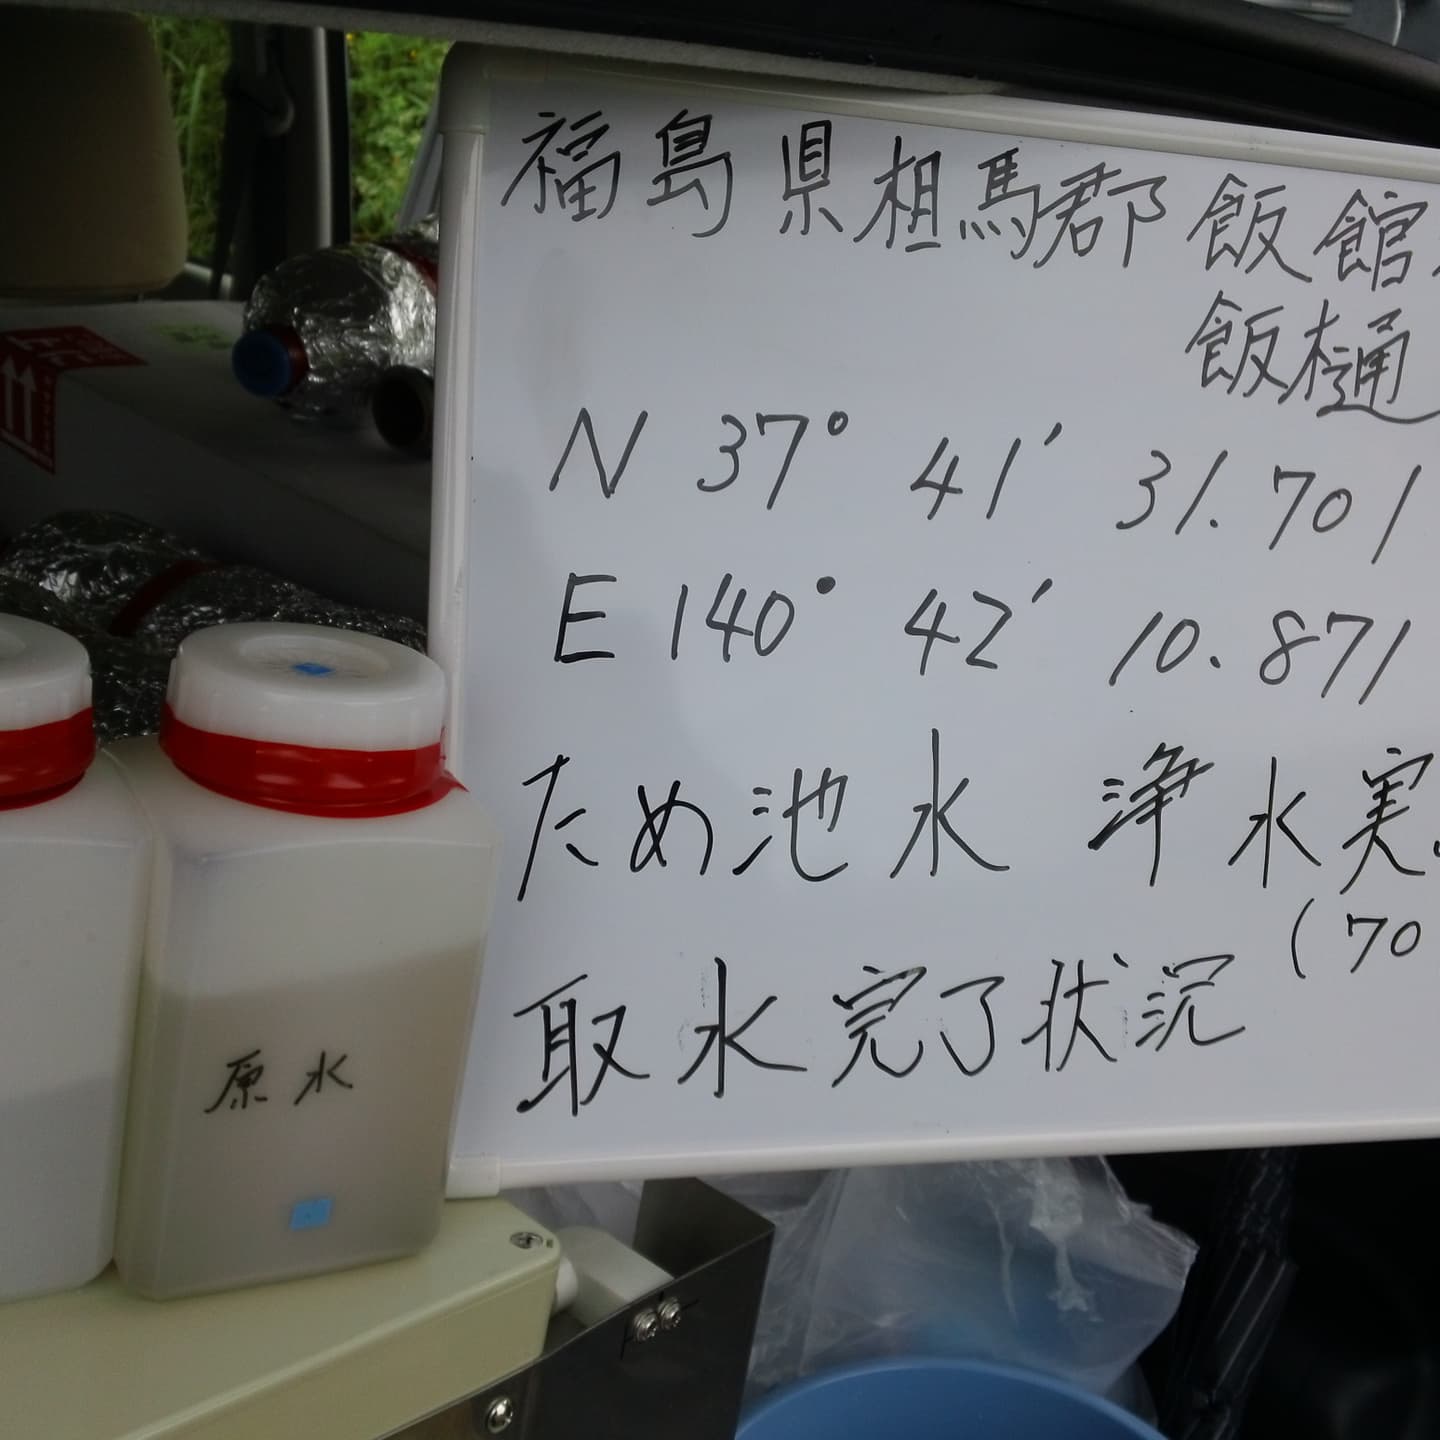 福島県相馬郡飯舘
飯樋
N 37° 41′ 31.701
E 140° 42′ 10.871
ため池水 浄水実
(70
取水完了状況
原水